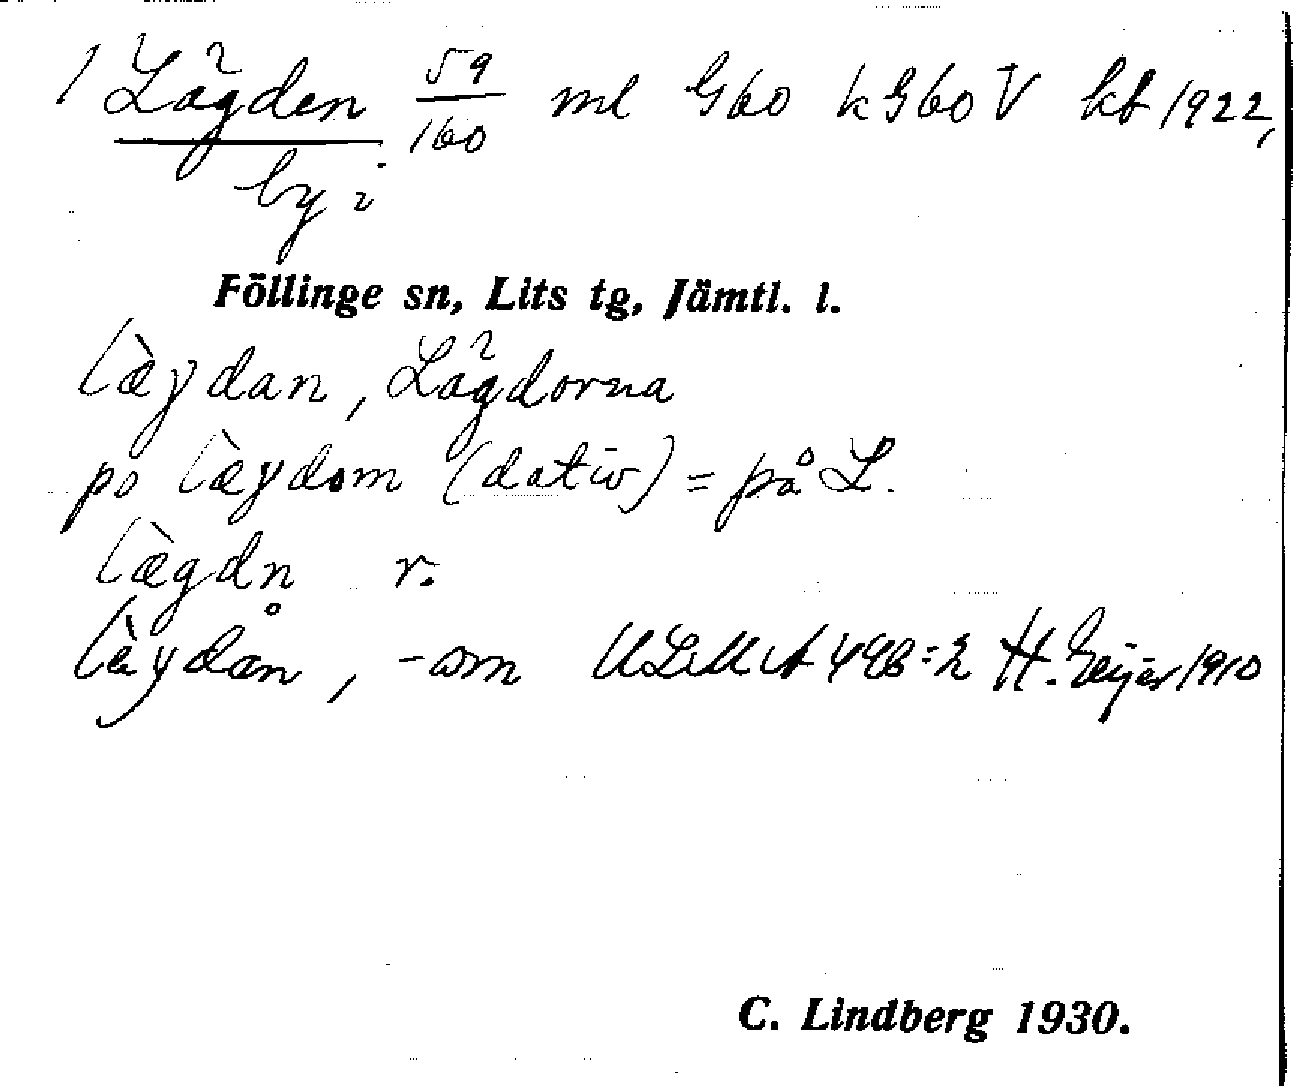 1 Lägden 59/160 ml G60 k G60 V kt 1922,
by i
Föllinge sn, Lits tg, Jämtl. l.
læ̀γdan, Lägdorna
po læ̀γdom (dativ) = på L.
læ̀gdn̥ r.
lèγdan, -om ULMA 498:2 H. Geijer 1910
C. Lindberg 1930.